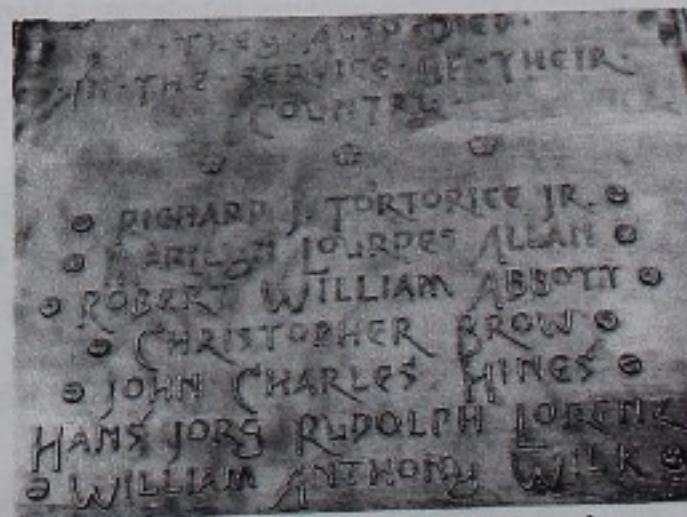 ·THEY·ALSO·DIED·
·IN·THE·SERVICE·OF·THEIR·
·COUNTRY·
RICHARD J. TORTORICE JR.
MARILYN LOURDES ALLAN
ROBERT WILLIAM ABBOTT
CHRISTOPHER BROW
JOHN CHARLES HINES
HANS JORG RUDOLPH LORENZ
WILLIAM ANTHONY WILK